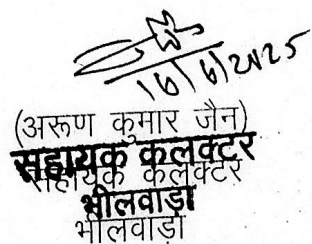 16/6/2025
(अरूण कुमार जैन)
सहायक कलक्टर
सहायक कलक्टर
भीलवाड़ा
भीलवाड़ा